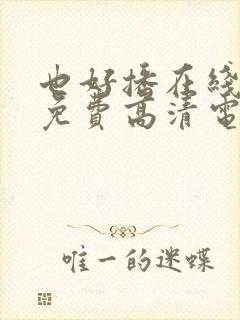 也好播在线
免费高清電
唯一的迷蝶